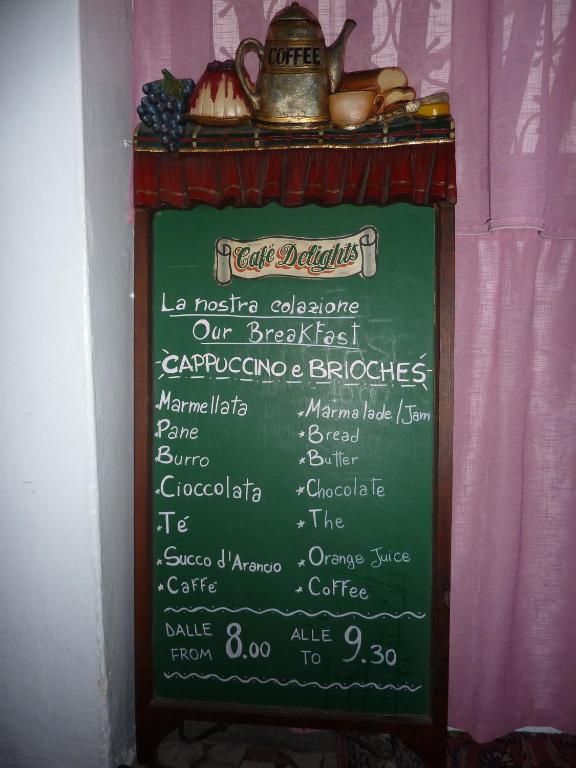 COFFEE
Café Delights
La nostra colazione
Our Breakfast
CAPPUCCINO e BRIOCHES
*Marmellata *Marmalade/Jam
*Pane *Bread
*Burro *Butter
*Cioccolata *Chocolate
*Té *The
*Succo d'Arancio *Orange Juice
*Caffé *Coffee
DALLE 8.00 ALLE 9.30
FROM TO